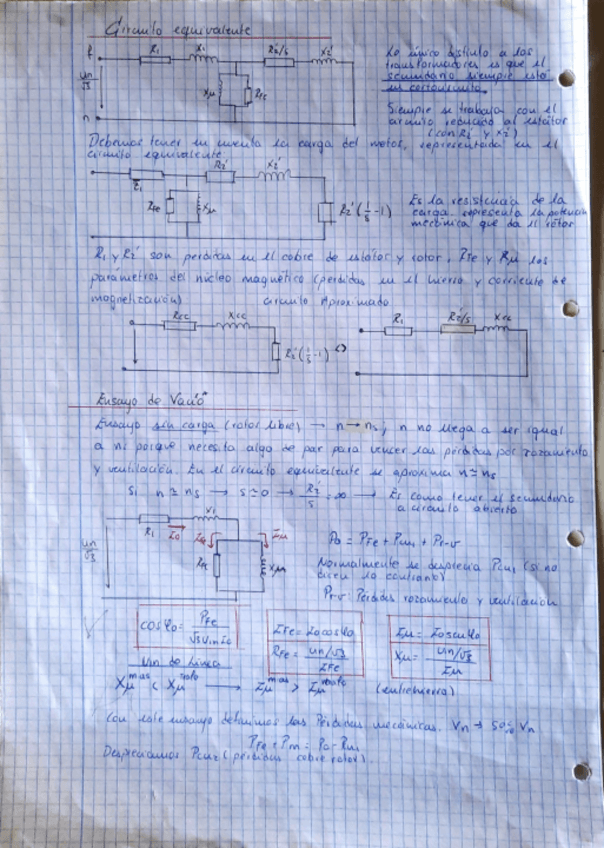 Circuito equivalente
f R1 X1 R2'/s X2'
Un/√3 Xμ RFe
n
Lo único distinto a los
transformadores es que el
secundario siempre está
en cortocircuito.
Siempre se trabaja con el
circuito reducido al estátor
(con R2' y X2')
Debemos tener en cuenta la carga del motor, representada en el
circuito equivalente
R2' X2'
RFe Xμ R2'(1/s-1)
Es la resistencia de la
carga. representa la potencia
mecánica que da el rotor
R1 y R2' son perdidas en el cobre de estátor y rotor. RFe y Xμ los
parámetros del núcleo magnético (perdidas en el hierro y corriente de
magnetización) Circuito Aproximado
Rcc Xcc R1 R2'/s Xcc
R2'(1/s-1) <>
Ensayo de Vacío
Ensayo sin carga (rotor libre) → n→ns; n no llega a ser igual
a ns porque necesita algo de par para vencer las pérdidas por rozamiento
y ventilación. En el circuito equivalente se aproxima n≃ns
Si n≃ns → s≃0 → R2'/s=∞ → Es como tener el secundario
a circuito abierto
R1 I0 X1 Iμ
Un/√3 RFe Xμ
P0 = PFe + Pcu1 + Pr-v
Normalmente se desprecia Pcu1 (si no
dicen lo contrario)
Pr-v: Perdidas rozamiento y ventilación
cosφ0 = PFe/√3UnI0
IFe = I0cosφ0
RFe = Un/√3/IFe
Iμ = I0senφ0
Xμ = Un/√3/Iμ
Un de Línea
Xμ < Xμ → Iμ > Iμ (entrehierro)
Con este ensayo definimos las Pérdidas mecánicas. Vn → 50% Vn
PFe + Pm = P0 - Pcu1
Despreciamos Pcu2 (perdidas cobre rotor).